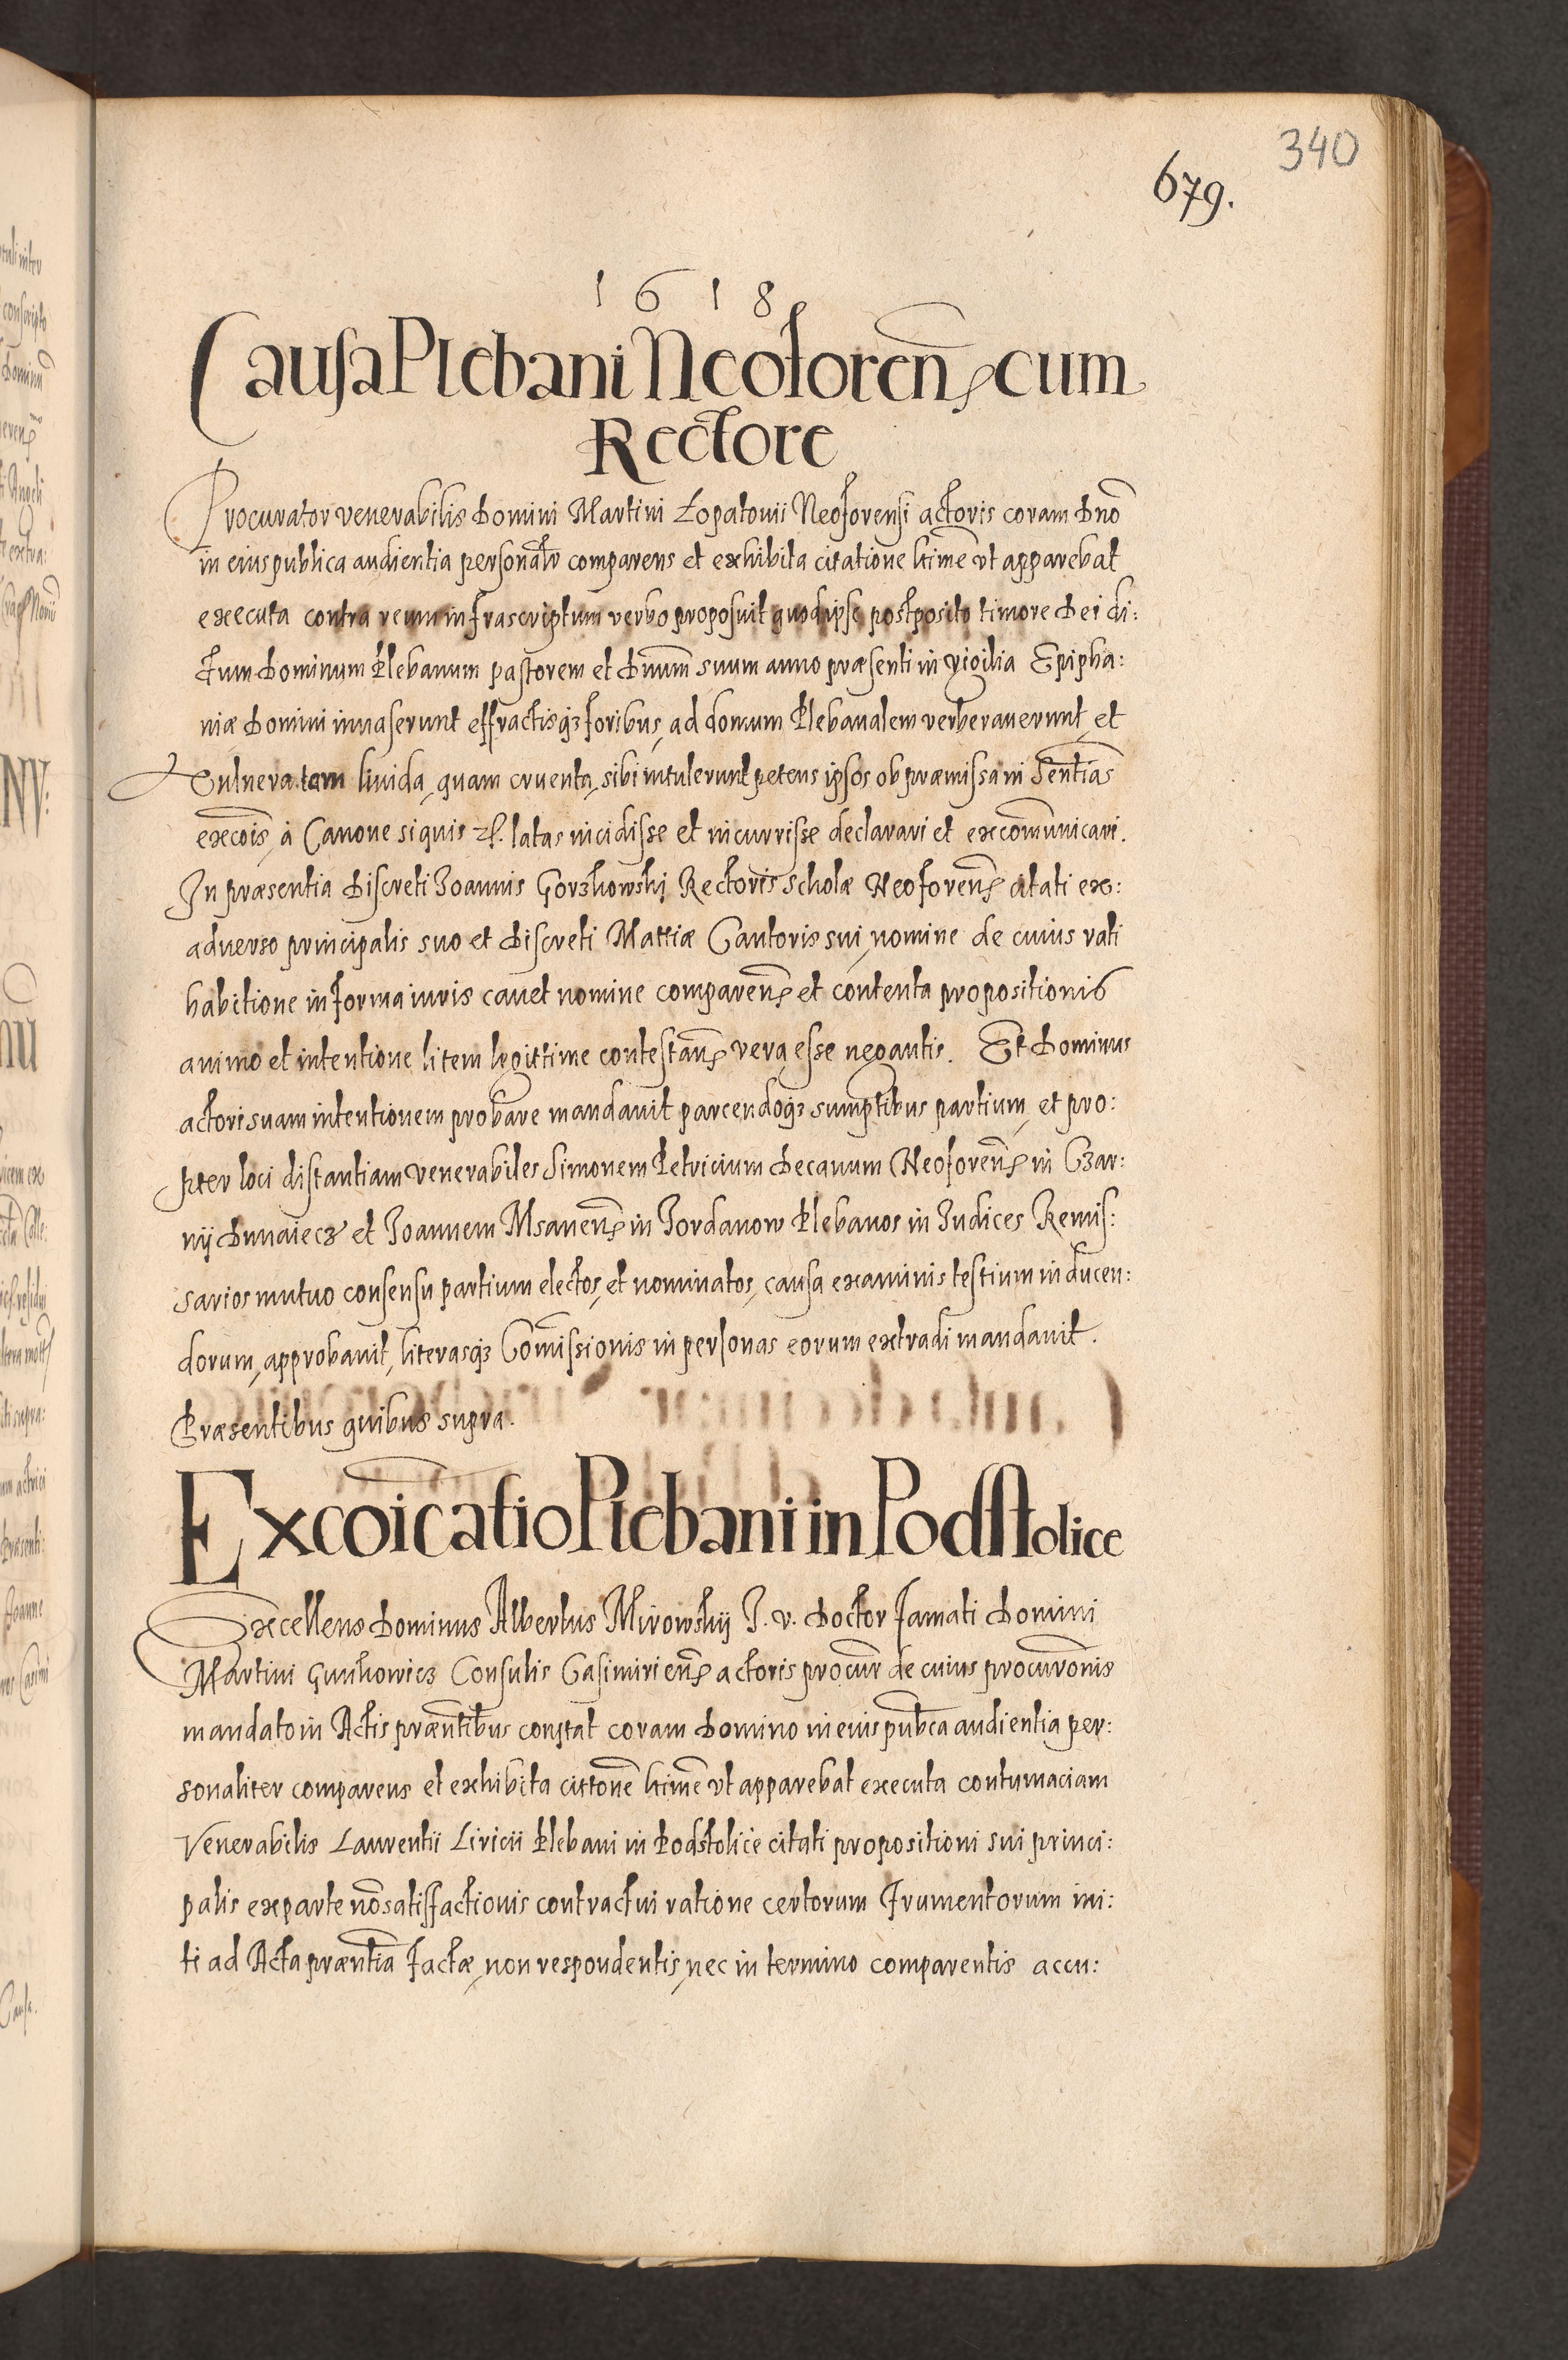 340
679.
1618
Causa Plebani Neoforen̄ cum
Rectore
Procurator venerabilis Domini Martini Łopatovii Neoforensi actoris coram Dn̄o
in eius publica audientia personal̄r comparens et exhibita citatione l̄time vt apparebat
executa contra reum infrascriptum verbo proposuit quod ipse postposito timore Dei di:
ctum Dominum Plebanum pastorem et Dnūm suum anno præsenti in vigilia Epipha:
niæ Domini invaserunt effractisq3 foribus, ad domum Plebanalem verberauerunt, et
vulnera tam livida, quam cruenta, sibi intulerunt petens ipsos ob præmissa in Sentīas
excōis, à Canone siquis latas incidisse et incurrisse declarari et excōmunicari.
In præsentia Discreti Joannis Gorzkowski Rectoris scholæ Neoforen̄ citati ex:
adverso principalis suo et Discreti Mattiæ Cantoris sui, nomine de cuius rati
habitione in forma iuris cavet nomine comparen̄ et contenta propositionis
animo et intentione litem legittime contestan̄ vera esse negantis. Et Dominus
actori suam intentionem probare mandavit parcendoq3 sumptibus partium, et pro:
pter loci distantiam venerabiles Simonem Petricium Decanum Neoforen̄ in Czar:
nij Dunaiecz et Joannem Msanen̄ in Jordanow Plebanos in Judices Remis:
sarios mutuo consensu partium electos, et nominatos, causa examinis testium inducen:
dorum, approbavit, literasq3 Com̄issionis in personas eorum extradi mandavit.
Præsentibus quibus supra.
Excōicatio Plebani in Podstolice
Excellens Dominus Albertus Mirowskij J. V. Doctor famati Domini
Martini Consulis Casimirien̄ actoris procur̄ de cuius procurōnis
mandato in Actis præn̄tibus constat coram Domino in eius pub̄ca audientia per:
sonaliter comparens et exhibita cittonē l̄timē vt apparebat executa contumaciam
Venerabilis Laurentii Liricii Plebani in Podstolice citati propositioni sui princi:
palis ex parte nōsatisfactionis contractui ratione certorum frumentorum ini:
ti ad Acta præn̄tia factæ, non respondentis, nec in termino comparentis accu: